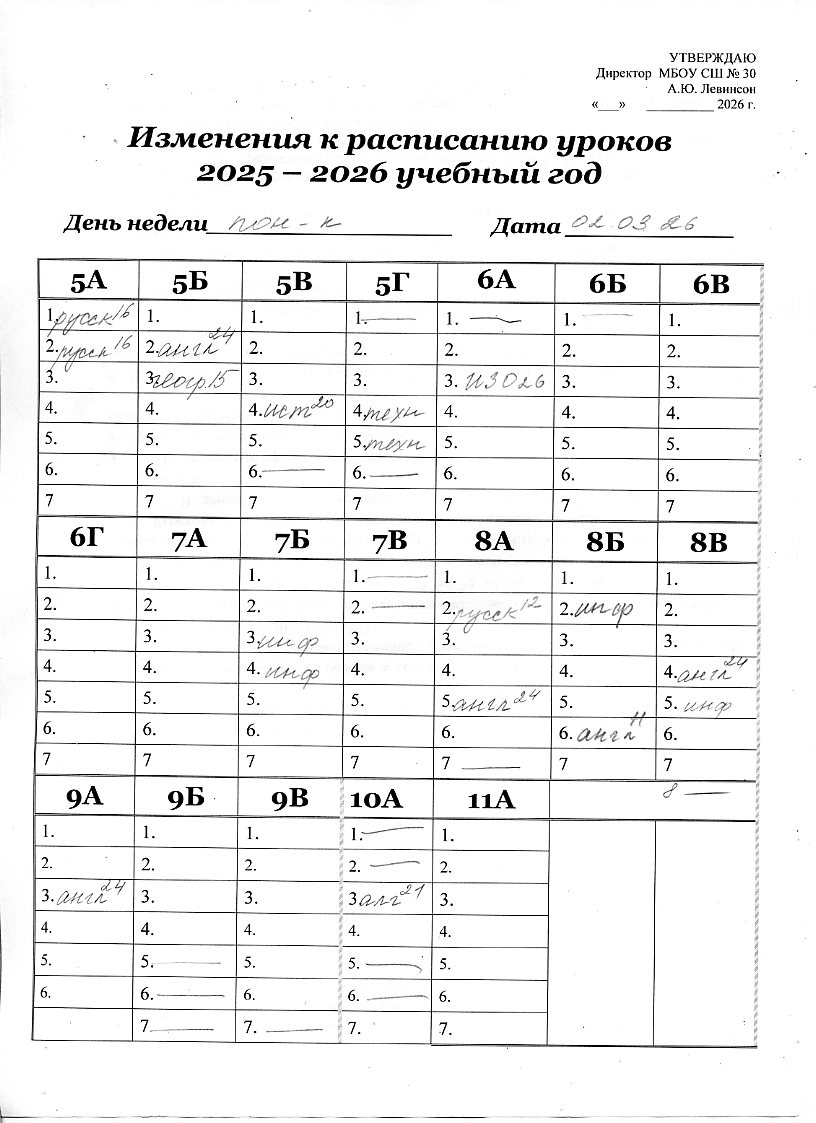 УТВЕРЖДАЮ
Директор МБОУ СШ № 30
А.Ю. Левинсон
«___» __________ 2026 г.
Изменения к расписанию уроков
2025 – 2026 учебный год
День недели пон - к Дата 02 03 26
5А 5Б 5В 5Г 6А 6Б 6В
1. русск 16 1. 1. 1. — 1. — 1. — 1.
2. русск 16 2. англ 24 2. 2. 2. 2. 2.
3. 3. геогр. 15 3. 3. 3. ИЗО 26 3. 3.
4. 4. 4. ист 20 4. техн 4. 4. 4.
5. 5. 5. 5. техн 5. 5. 5.
6. 6. 6. — 6. — 6. 6. 6.
7 7 7 7 7 7 7
6Г 7А 7Б 7В 8А 8Б 8В
1. 1. 1. 1. — 1. 1. 1.
2. 2. 2. 2. — 2. русск 12 2. инф 2.
3. 3. 3. инф 3. 3. 3. 3.
4. 4. 4. инф 4. 4. 4. 4. англ 24
5. 5. 5. 5. 5. англ 24 5. 5. инф
6. 6. 6. 6. 6. 6. англ 11 6.
7 7 7 7 7 — 7 7
9А 9Б 9В 10А 11А 8 —
1. 1. 1. 1. — 1.
2. 2. 2. 2. — 2.
3. англ 24 3. 3. 3 алг 21 3.
4. 4. 4. 4. 4.
5. 5. — 5. 5. — 5.
6. 6. — 6. 6. — 6.
7. — 7. — 7. 7.